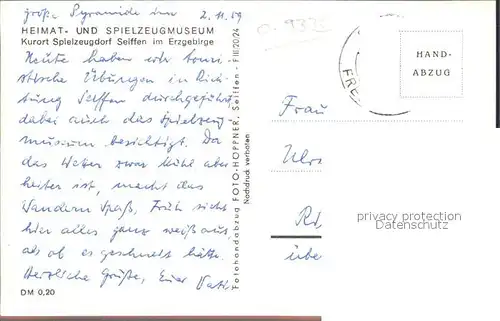 große Pyramide im 2.11.59
HEIMAT- UND SPIELZEUGMUSEUM
Kurort Spielzeugdorf Seiffen im Erzgebirge
Heute haben wir touri-
stische Übungen in Rich-
tung Seiffen durchgeführt
dabei auch das Spielzeug-
museum besichtigt. Da
das Wetter zwar kühl aber
heiter ist, macht das
Wandern Spaß, Früh sieht
hier alles ganz weiß aus
als ob es geschneit hätte.
Herzliche Grüße, Euer Vati.
DM 0,20
Fotohandabzug FOTO-HÖPPNER, Seiffen - F III 20 24
Nachdruck verboten
HAND-
ABZUG
FRE
Frau
privacy protection
Datenschutz